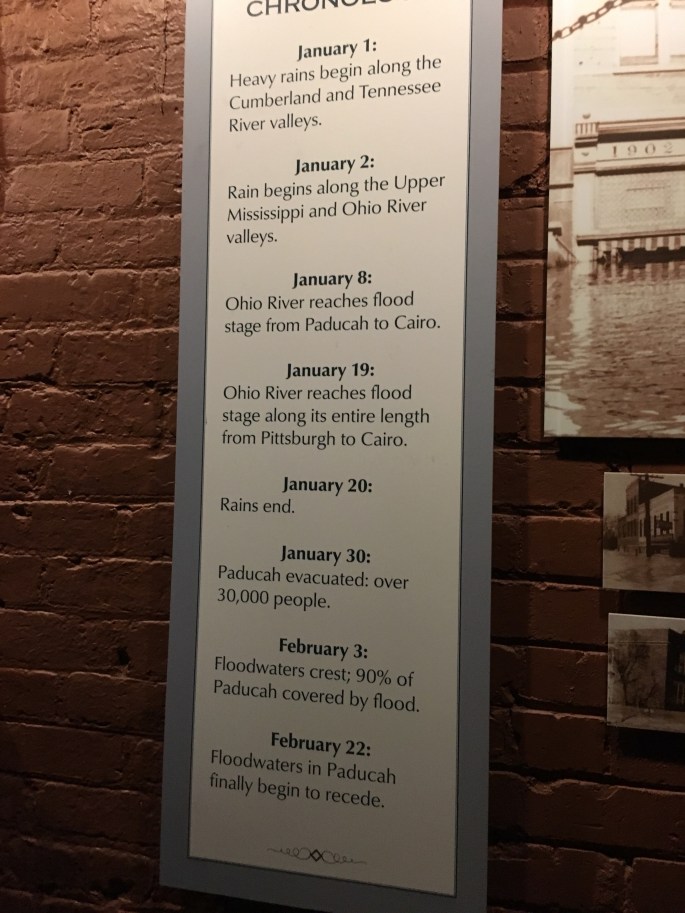 January 1:
Heavy rains begin along the
Cumberland and Tennessee
River valleys.
January 2:
Rain begins along the Upper
Mississippi and Ohio River
valleys.
January 8:
Ohio River reaches flood
stage from Paducah to Cairo.
January 19:
Ohio River reaches flood
stage along its entire length
from Pittsburgh to Cairo.
January 20:
Rains end.
January 30:
Paducah evacuated: over
30,000 people.
February 3:
Floodwaters crest; 90% of
Paducah covered by flood.
February 22:
Floodwaters in Paducah
finally begin to recede.
1902